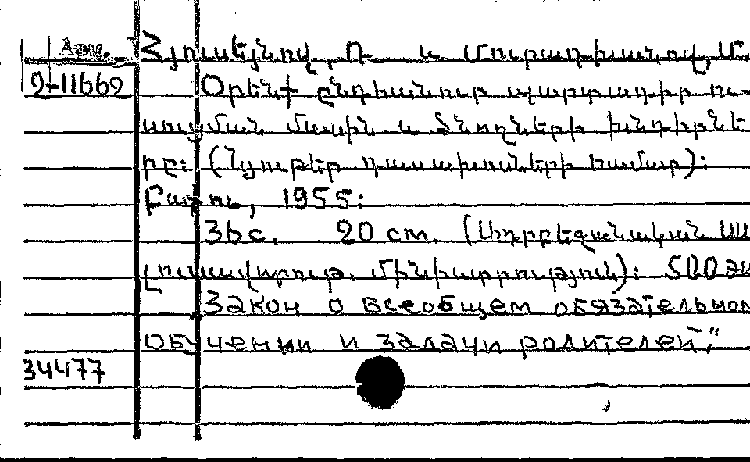 Հյուսեյնով, Ռ. և Մուրադխանով, Մ.
2-11662
Օրենք ընդհանուր պարտադիր ու-
սուցման մասին և ծնողների խնդիրնե
րը: (Նյութեր դասախոսների համար):
Բաքու, 1955:
36с. 20 cm. (Ադրբեջանական ՍՍ
լուսավորութ. մինիստրություն): 500
Закон о всеобщем обязательном
обучении и задачи родителей",
34477